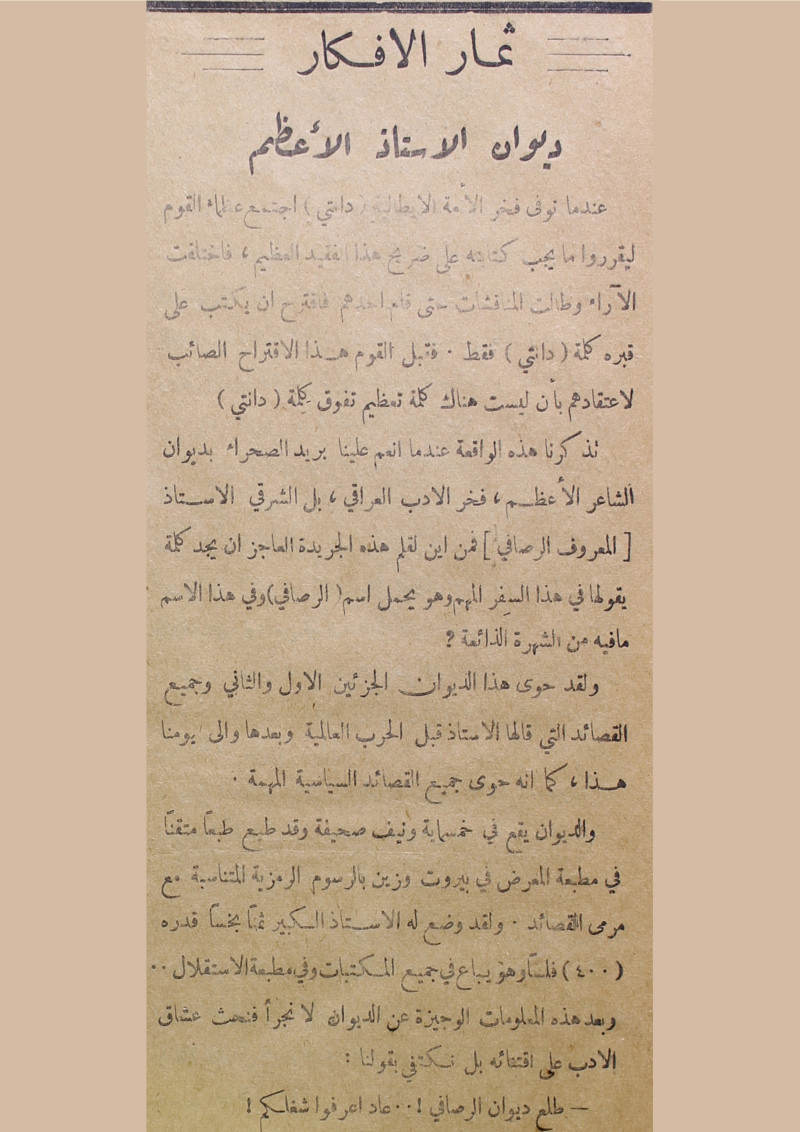 ثمار الافكار
ديوان الاستاذ الأعظم
عندما توفى فخر الأمة الايطالية (دانتي) اجتمع عظماء القوم
ليقرروا ما يجب كتابته على ضريح هذا الفقيد العظيم، فاختلفت
الآراء وطالت المناقشات حتى قام احدهم فاقترح ان يكتب على
قبره كلمة (دانتي) فقط. فقبل القوم هذا الاقتراح الصائب
لاعتقادهم بأن ليست هناك كلمة تعظيم تفوق كلمة (دانتي)
تذكرنا هذه الواقعة عندما انعم علينا بريد الصحراء بديوان
الشاعر الأعظم، فخر الادب العراقي، بل الشرقي الاستاذ
[المعروف الرصافي] فمن اين لقلم هذه الجريدة العاجز ان يجد كلمة
يقولها في هذا السفر المهم وهو يحمل اسم (الرصافي) وفي هذا الاسم
مافيه من الشهرة الذائعة؟
ولقد حوى هذا الديوان الجزئين الاول والثاني وجميع
القصائد التي قالها الاستاذ قبل الحرب العالمية وبعدها والى يومنا
هذا، كما انه حوى جميع القصائد السياسية المهمة.
والديوان يقع في خمسماية ونيف صحيفة وقد طبع طبعاً متقناً
في مطبعة المعرض في بيروت وزين بالرسوم الرمزية المتناسبة مع
مرمى القصائد. ولقد وضع له الاستاذ الكبير ثمناً بخساً قدره
(٤٠٠) فلساً وهو يباع في جميع المكتبات وفي مطبعة الاستقلال..
وبعد هذه المعلومات الوجيزة عن الديوان لا نجرأ فنحث عشاق
الادب على اقتنائه بل نكتفي بقولنا:
— طلع ديوان الرصافي!.. عاد اعرفوا شغلكم!